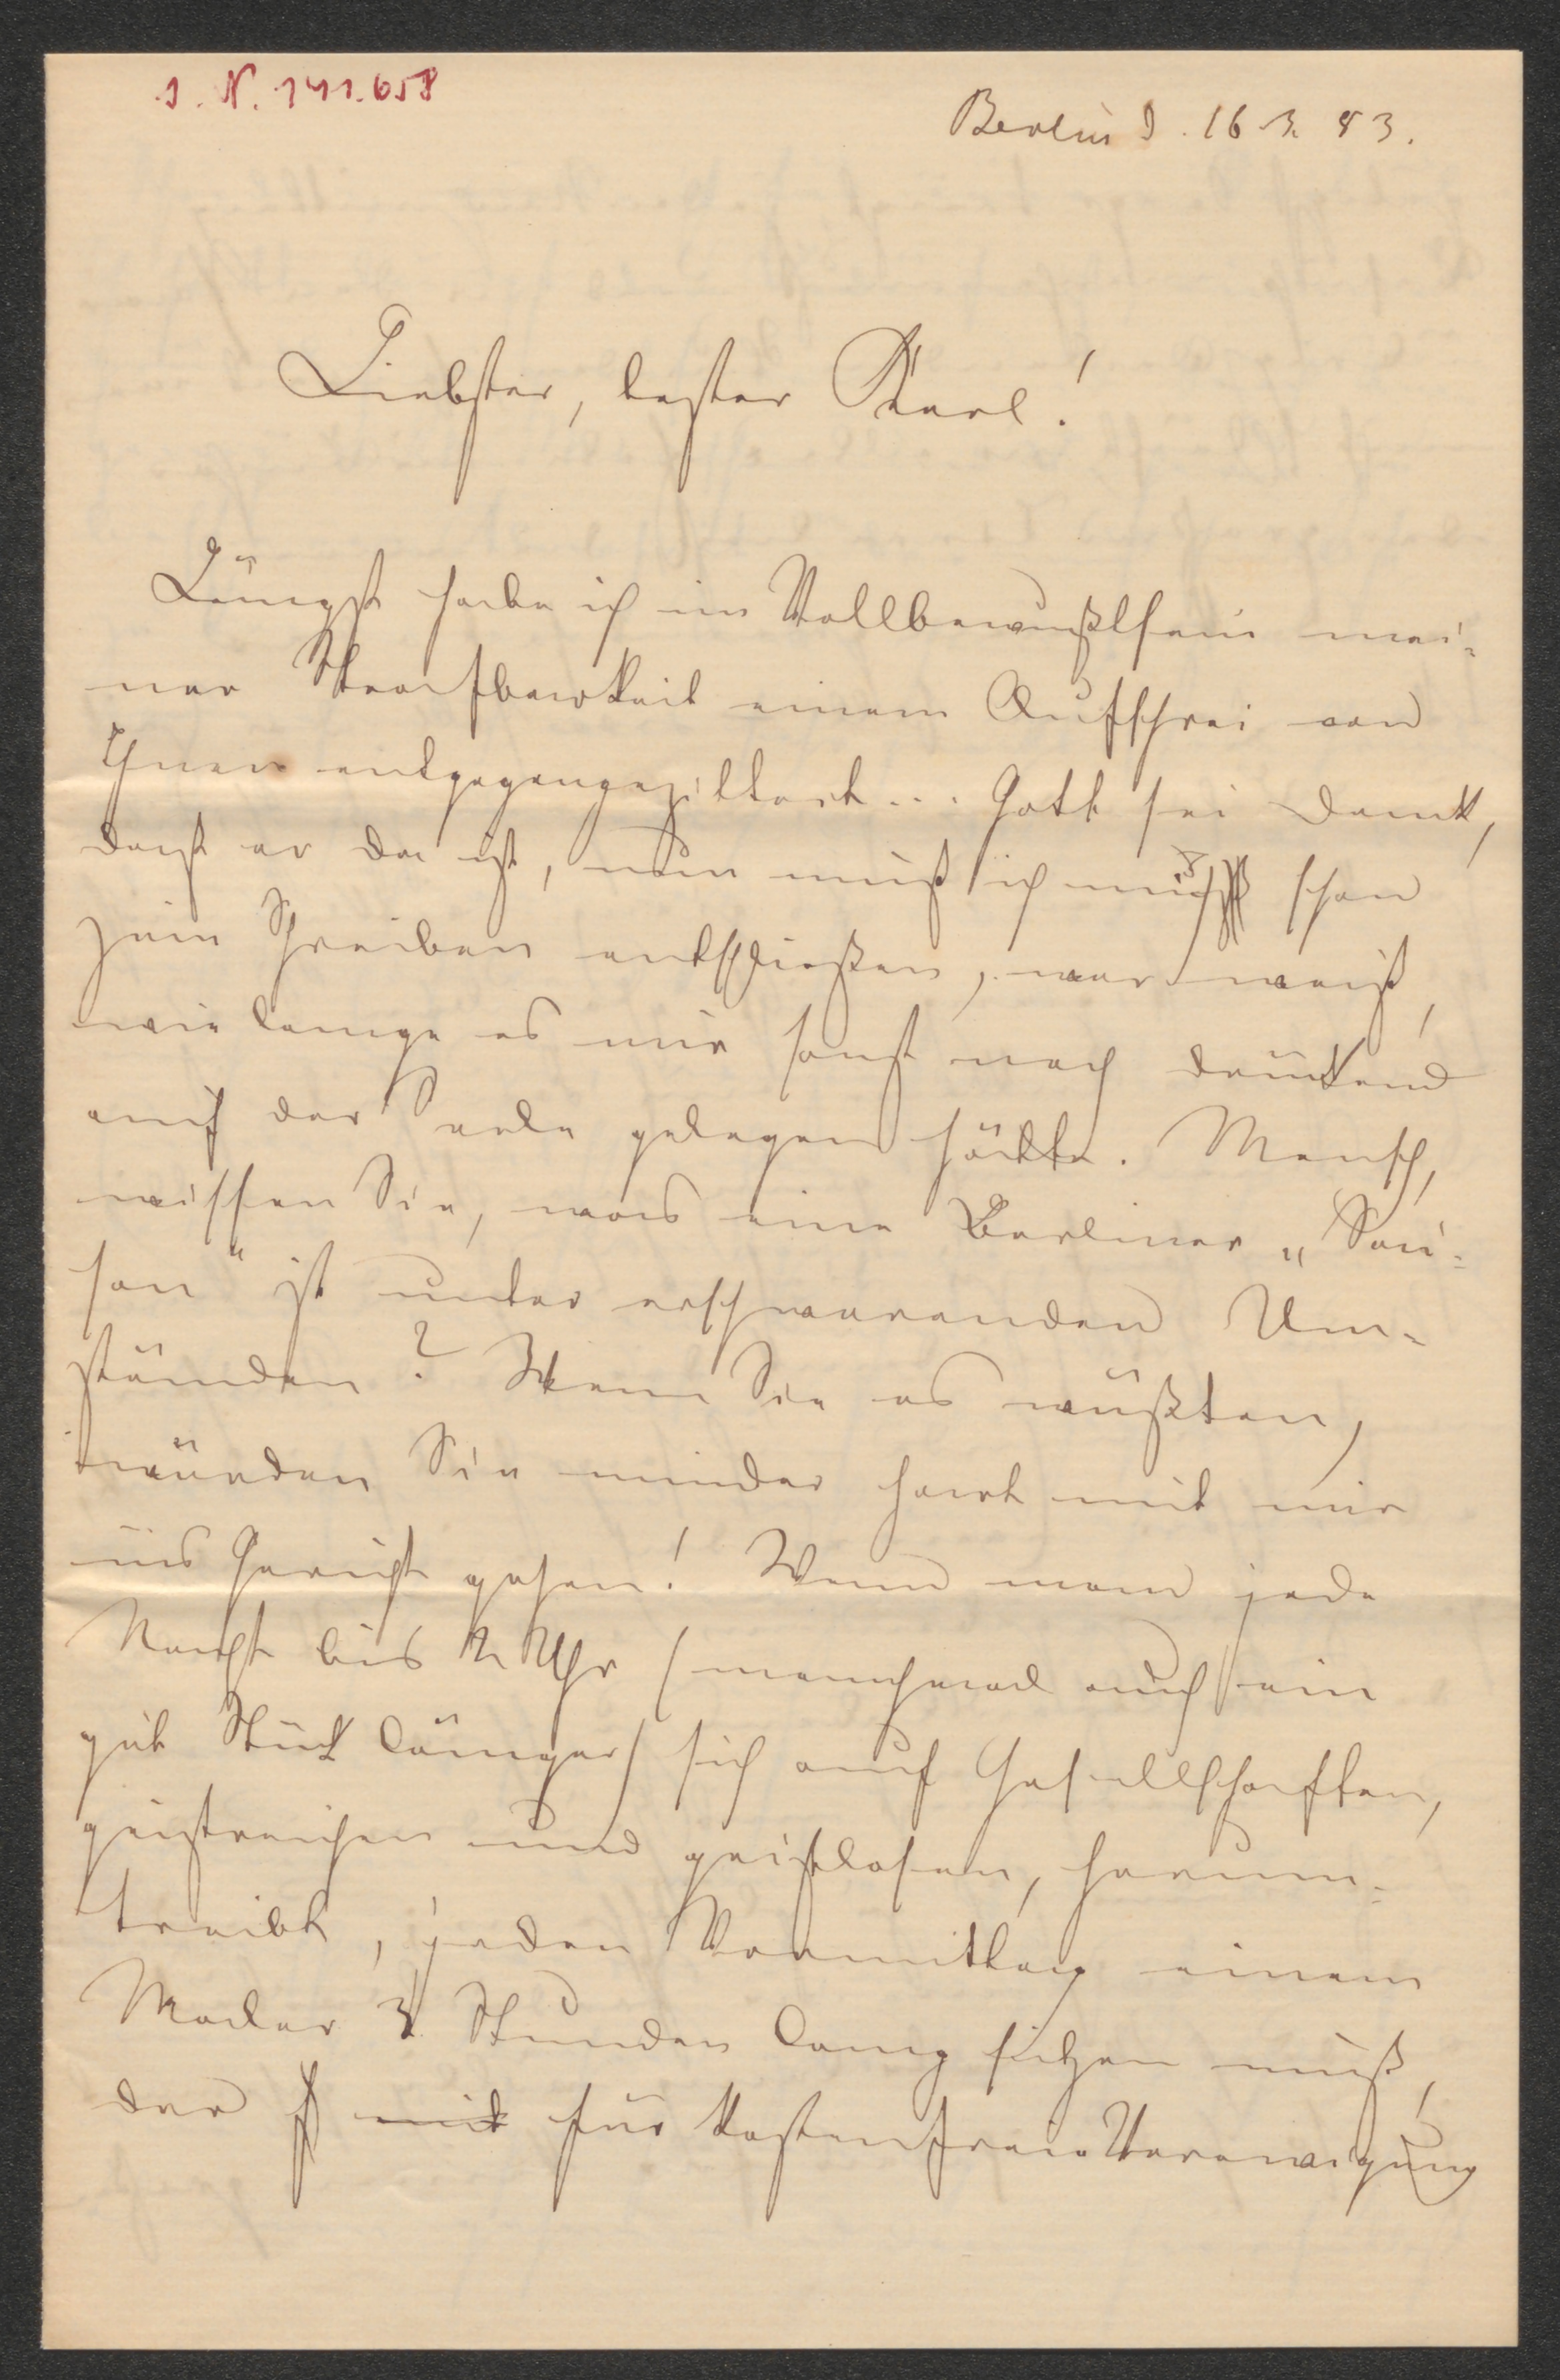 I. N. 141.658
Berlin d. 16 3. 83.
Liebster, bester Karl!
Längst habe ich im Vollbewußtsein mei-
ner Strafbarkeit einem Aufschrei von
Ihnen entgegengezittert... Gott sei Dank,
daß er da ist, nun muß ich mich schon
zum Schreiben entschließen, wer weiß,
wie lange es mir sonst noch drückend
auf der Seele gelegen hätte. Mensch,
wissen Sie, was eine Berliner „Sai-
son“ ist unter erschwerenden Um-
ständen? Wenn Sie es wüßten,
würden Sie minder hart mit mir
ins Gericht gehen! Wenn man jede
Nacht bis 2 Uhr (manchmal auch ein
gut Stück länger) sich auf Gesellschaften,
geistreichen und geistlosen, herum-
treibt, jeden Vormittag einem
Maler 3 Stunden lang sitzen muß,
der mit für kostenfreie Verewigung